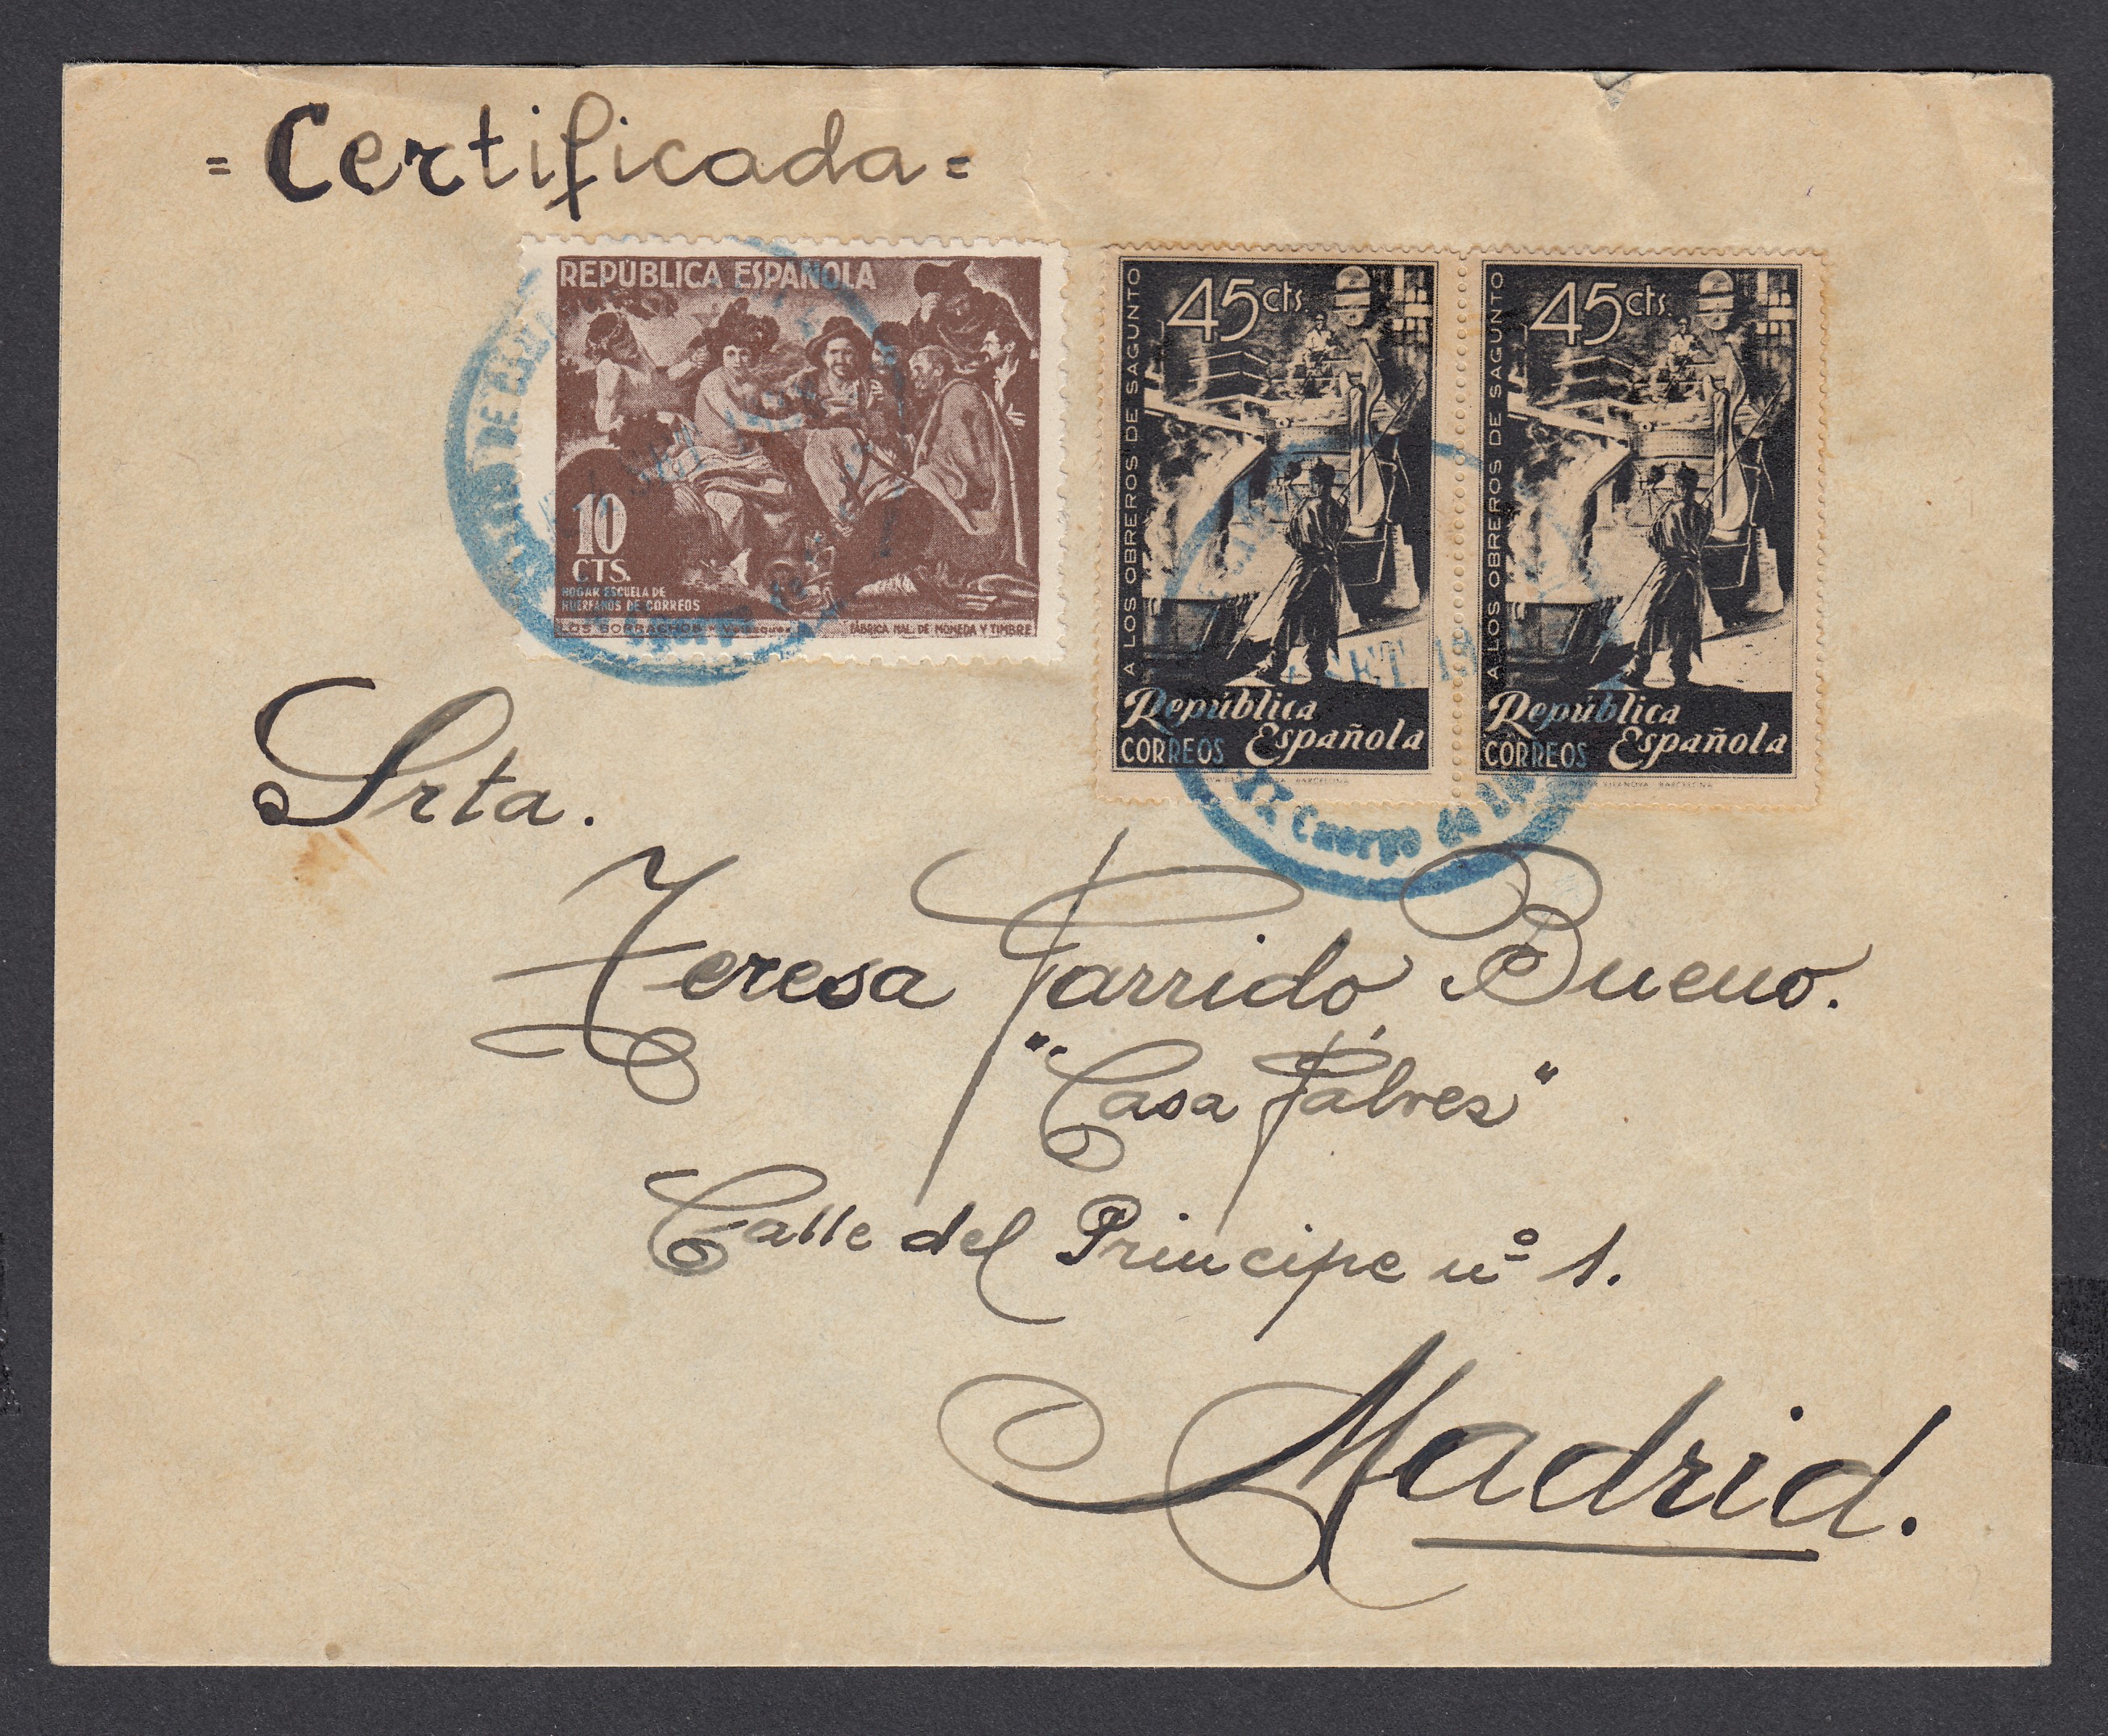 = Certificada =
REPÚBLICA ESPAÑOLA
10
CTS.
HOGAR ESCUELA DE
HUERFANOS DE CORREOS
LOS BORRACHOS - Velazquez FABRICA NAL. DE MONEDA Y TIMBRE
DE
SET
45 cts.
A LOS OBREROS DE SAGUNTO
República
Española
CORREOS
45 cts.
A LOS OBREROS DE SAGUNTO
República
Española
CORREOS
BARCELONA
VILANOVA - BARCELONA
SET 19
Cuerpo de
Srta.
Teresa Garrido Bueno.
"Casa
Calle del Principe nº 1.
Madrid.